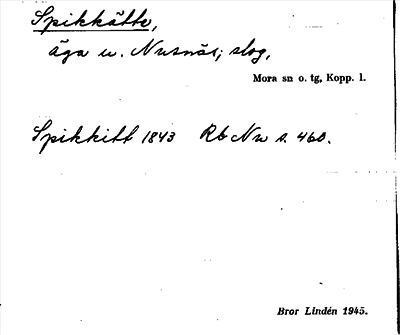 Spikkätte,
äga u. Nusnäs; slog,
Mora sn o. tg, Kopp. l.
Spikkitt 1843 Rb Nu s. 460.
Bror Lindén 1945.